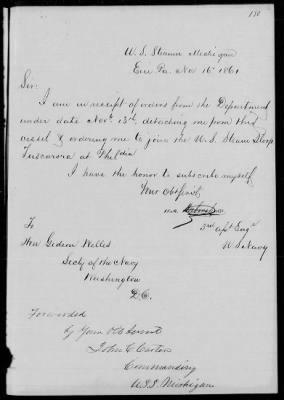 150
U.S. Steamer Michigan
Erie Pa. Nov 16th 1861
Sir:
I am in receipt of orders from the Department
under date Nov. 13th, detaching me from this
vessel & ordering me to join the U.S. Steam Sloop
Tuscarora at Pheldia
I have the honor to subscribe myself
Your Obt Servt
3rd Asst Engr
U S Navy
To
Hon Gideon Welles
Secty of the Navy
Washington
D.C.
Forwarded
by Your Obt Servant
John C Carter
Commanding
U.S.S. Michigan